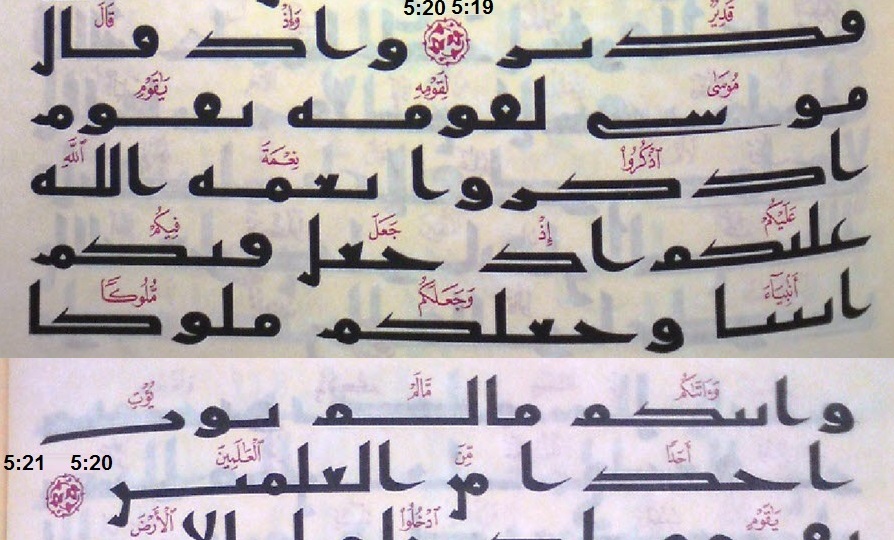 5:20 5:19
قَدِيرٌ وَإِذْ قَالَ
ٯدىر واد ٯال
مُوسَىٰ لِقَوْمِهِۦ يَٰقَوْمِ
موسى لٯومه ىٯوم
ٱذْكُرُوا۟ نِعْمَةَ ٱللَّهِ
ادكروا ىعمه الله
عَلَيْكُمْ إِذْ جَعَلَ فِيكُمْ
علىكم اد حعل ٯىكم
أَنۢبِيَآءَ وَجَعَلَكُم مُّلُوكًا
اىىىا وحعلكم ملوكا
وَءَاتَىٰكُم مَّالَمْ يُؤْتِ
واىىكم مالم ىوت
أَحَدًا مِّنَ ٱلْعَٰلَمِينَ
احدا مں العلمىں
5:21 5:20
يَٰقَوْمِ ٱدْخُلُوا۟ ٱلْأَرْضَ